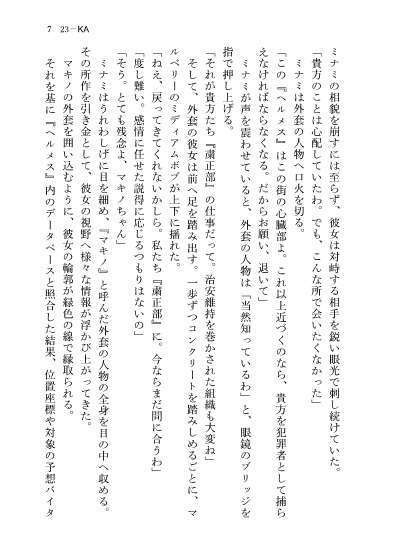 7　23－KA
ミナミの相貌を崩すには至らず、彼女は対峙する相手を鋭い眼光で刺し続けていた。
「貴方のことは心配していたわ。でも、こんな所で会いたくなかった」
ミナミは外套の人物へ口火を切る。
「この『ヘルメス』はこの街の心臓部よ。これ以上近づくのなら、貴方を犯罪者として捕ら
えなければならなくなる。だからお願い、退いて」
ミナミが声を震わせていると、外套の人物は「当然知っているわ」と、眼鏡のブリッジを
指で押し上げる。
「それが貴方たち『粛正部』の仕事だって。治安維持を巻かされた組織も大変ね」
そして、外套の彼女は前へ足を踏み出す。一歩ずつコンクリートを踏みしめるごとに、マ
ルベリーのミディアムボブが上下に揺れた。
「ねえ、戻ってきてくれないかしら。私たち『粛正部』に。今ならまだ間に合うわ」
「度し難い。感情に任せた説得に応じるつもりはないの」
「そう。とても残念よ、マキノちゃん」
ミナミはうれわしげに目を細め、『マキノ』と呼んだ外套の人物の全身を目の中へ収める。
その所作を引き金として、彼女の視野へ様々な情報が浮かび上がってきた。
マキノの外套を囲い込むように、彼女の輪郭が緑色の線で縁取られる。
それを基に『ヘルメス』内のデータベースと照合した結果、位置座標や対象の予想バイタ